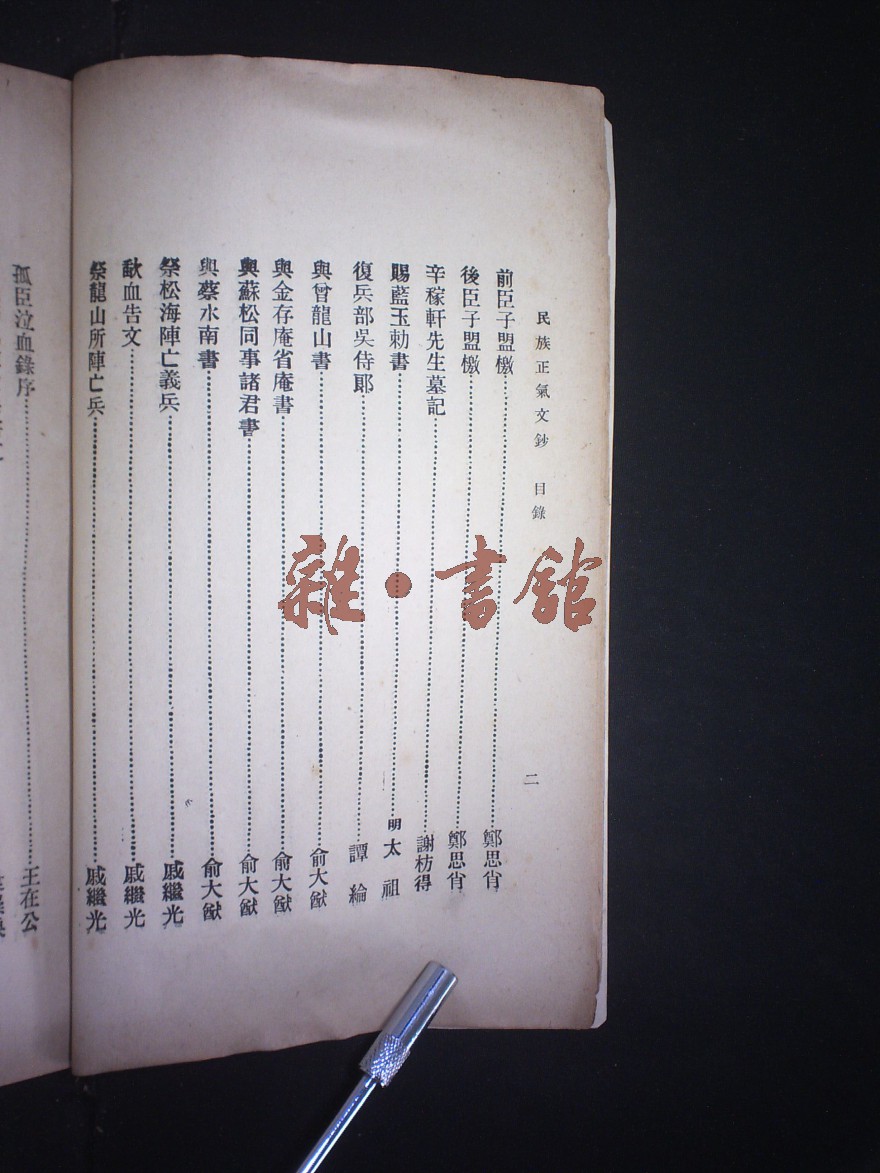 民族正氣文鈔 目錄 二
前臣子盟檄 鄭思肖
後臣子盟檄 鄭思肖
辛稼軒先生墓記 謝枋得
賜藍玉勅書 明太祖
復兵部吳侍郎 譚綸
與曾龍山書 俞大猷
與金存庵省庵書 俞大猷
與蘇松同事諸君書 俞大猷
與蔡水南書 俞大猷
祭松海陣亡義兵 戚繼光
歃血告文 戚繼光
祭龍山所陣亡兵 戚繼光
孤臣泣血錄序 王在公
雜·書館